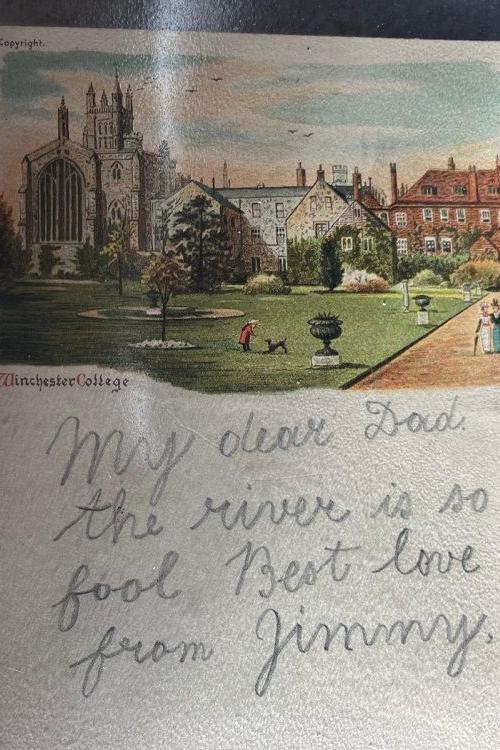 Copyright.
Winchester College
My dear Dad.
the river is so
fool Best love
from Jimmy.